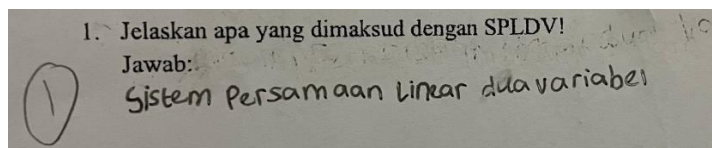 1. Jelaskan apa yang dimaksud dengan SPLDV!
Jawab:
1
Sistem Persamaan Linear dua variabel